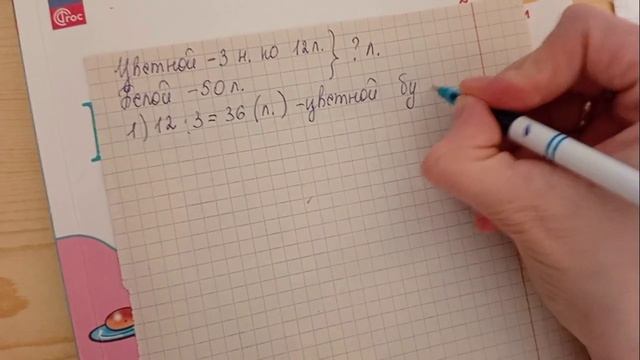 ФГОС
Цветной - 3 н. по 12 л. } ? л.
Белой - 50 л.
1) 12 : 3 = 36 (л.) - цветной бу